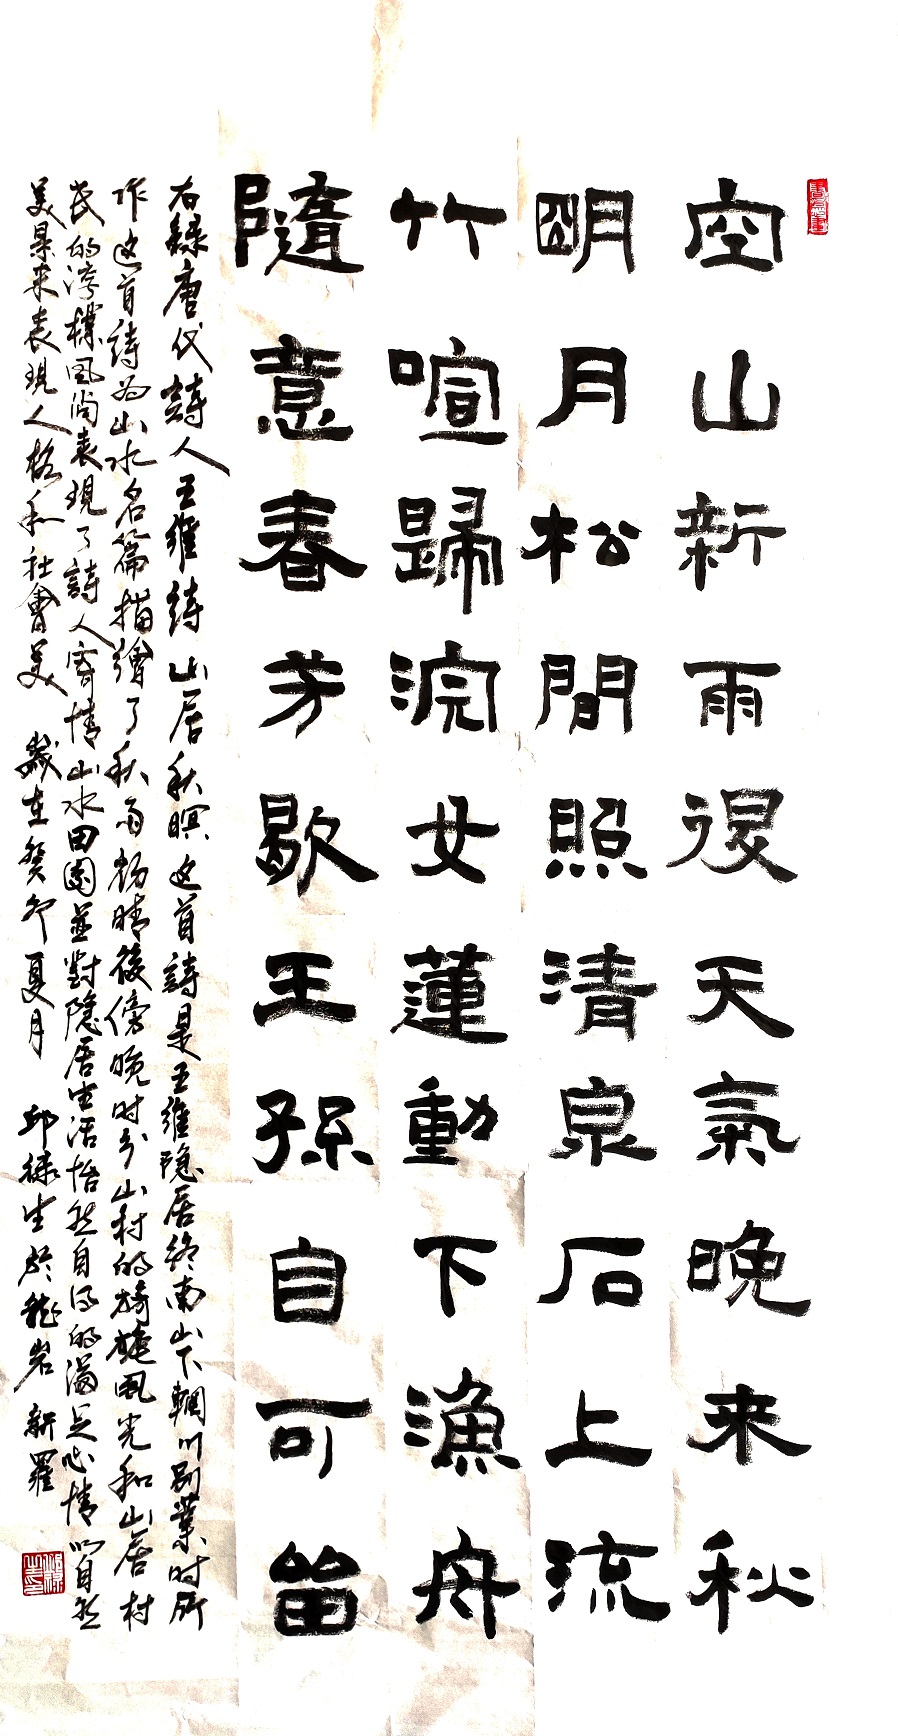 空山新雨後天氣晚来秋
明月松間照清泉石上流
竹喧歸浣女蓮動下漁舟
隨意春芳歇王孫自可留
右録唐代詩人王維詩山居秋暝这首詩是王維隐居終南山下輞川别業时所
作这首詩为山水名篇描繪了秋雨初晴後傍晚时分山村的旖旎風光和山居村
民的淳樸風尚表現了詩人寄情山水田園並對隐居生活怡然自得的滿足心情以自然
美景来表現人格和社會美 歲在癸卯夏月 邱禄生於龍岩新羅